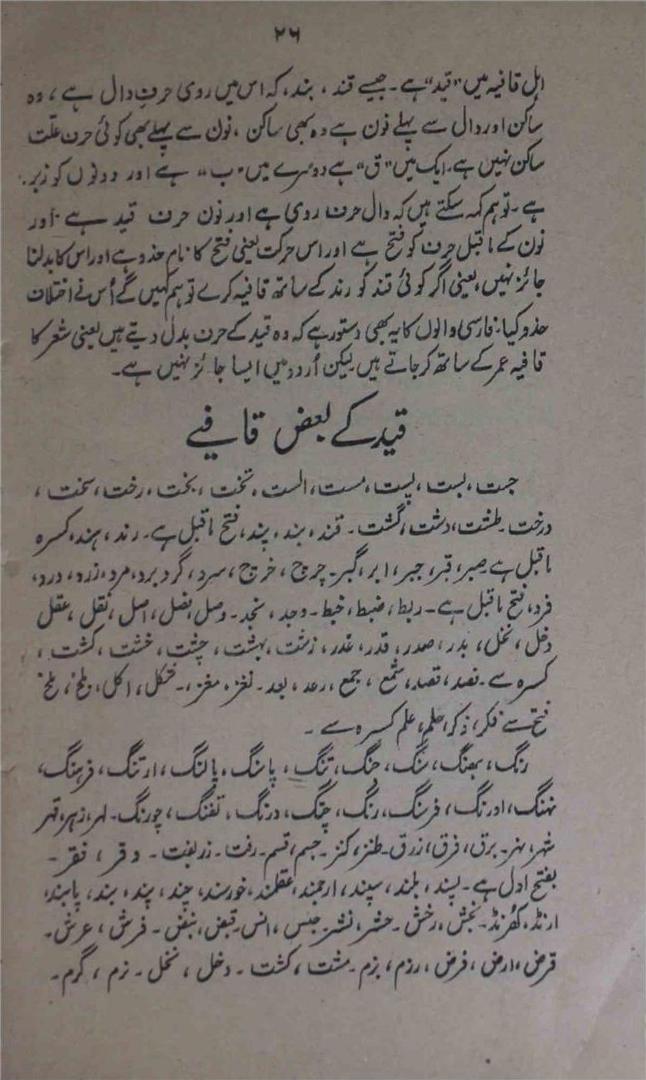 ۲۶
اہل قافیہ میں "قید" ہے۔ جیسے قند، بند، کہ اس میں روی حرف دال ہے، وہ
ساکن اور دال سے پہلے نون ہے وہ بھی ساکن، نون سے پہلے بھی کوئی حرف علّت
ساکن نہیں ہے۔ ایک میں "ق" ہے دوسرے میں "ب" ہے اور دونوں کو زبر
ہے۔ تو ہم کہہ سکتے ہیں کہ دال حرف روی ہے اور نون حرف قید ہے اور
نون کے ماقبل حرف کو فتح ہے اور اس حرکت یعنی فتح کا نام حذو ہے اور اس کا بدلنا
جائز نہیں، یعنی اگر کوئی قند کو رند کے ساتھ قافیہ کرے تو ہم کہیں گے اُس نے اختلاف
حذو کیا۔ فارسی والوں کا یہ بھی دستور ہے کہ وہ قید کے حرف بدل دیتے ہیں یعنی شعر کا
قافیہ عمر کے ساتھ کر جاتے ہیں لیکن اُردو میں ایسا جائز نہیں ہے۔
قید کے بعض قافیے
جست، بست، پست، مست، الست، تخت، بخت، رخت، سخت،
درخت۔ طشت، دشت، گشت۔ قند، بند، پند، فتح ماقبل ہے۔ رند، ہند، کسرہ
ماقبل ہے۔ صبر، قبر، جبر، ابر، گبر۔ چرخ، خرج، سرد، گرد، برد، مرد، زرد، درد،
فرد، فتح ماقبل ہے۔ ربط، ضبط، خبط۔ وجد، نجد۔ وصل، فصل، اصل، نقل، عقل
دخل، نخل، بدر، صدر، قدر، غدر، زشت، بہشت، چشت، خشت، کشت،
کسرہ سے۔ فصد، قصد، شمع، جمع، رعد، بعد۔ لغز، مغز،۔ شکل، اکل، بلخ، تلخ
فتح سے فکر، ذکر، حلم، علم کسرہ سے۔
رنگ، بھنگ، سنگ، جنگ، تنگ، پاسنگ، پالنگ، ارتنگ، فرہنگ،
نہنگ، اورنگ، فرسنگ، رنگ، چنگ، درنگ، تفنگ، چورنگ۔ لہر، زہر، قہر
شہر، نہر۔ برق، فرق، زرق۔ طنز، کنز۔ جسم، قسم۔ رفت۔ زربفت۔ وقر، فقر۔
بفتح اول ہے۔ پسند، بلند، سپند، ارجمند، عقلمند، خورسند، چند، پند، بند، پابند،
ارنڈ، کھرنڈ۔ بخش، رخش۔ حشر، نشر۔ جنس، انس۔ قبض، نبض۔ فرش، عرش۔
قرض، ارض، فرض، رزم، بزم۔ مشت، کشت۔ دخل، نخل۔ نرم، گرم۔